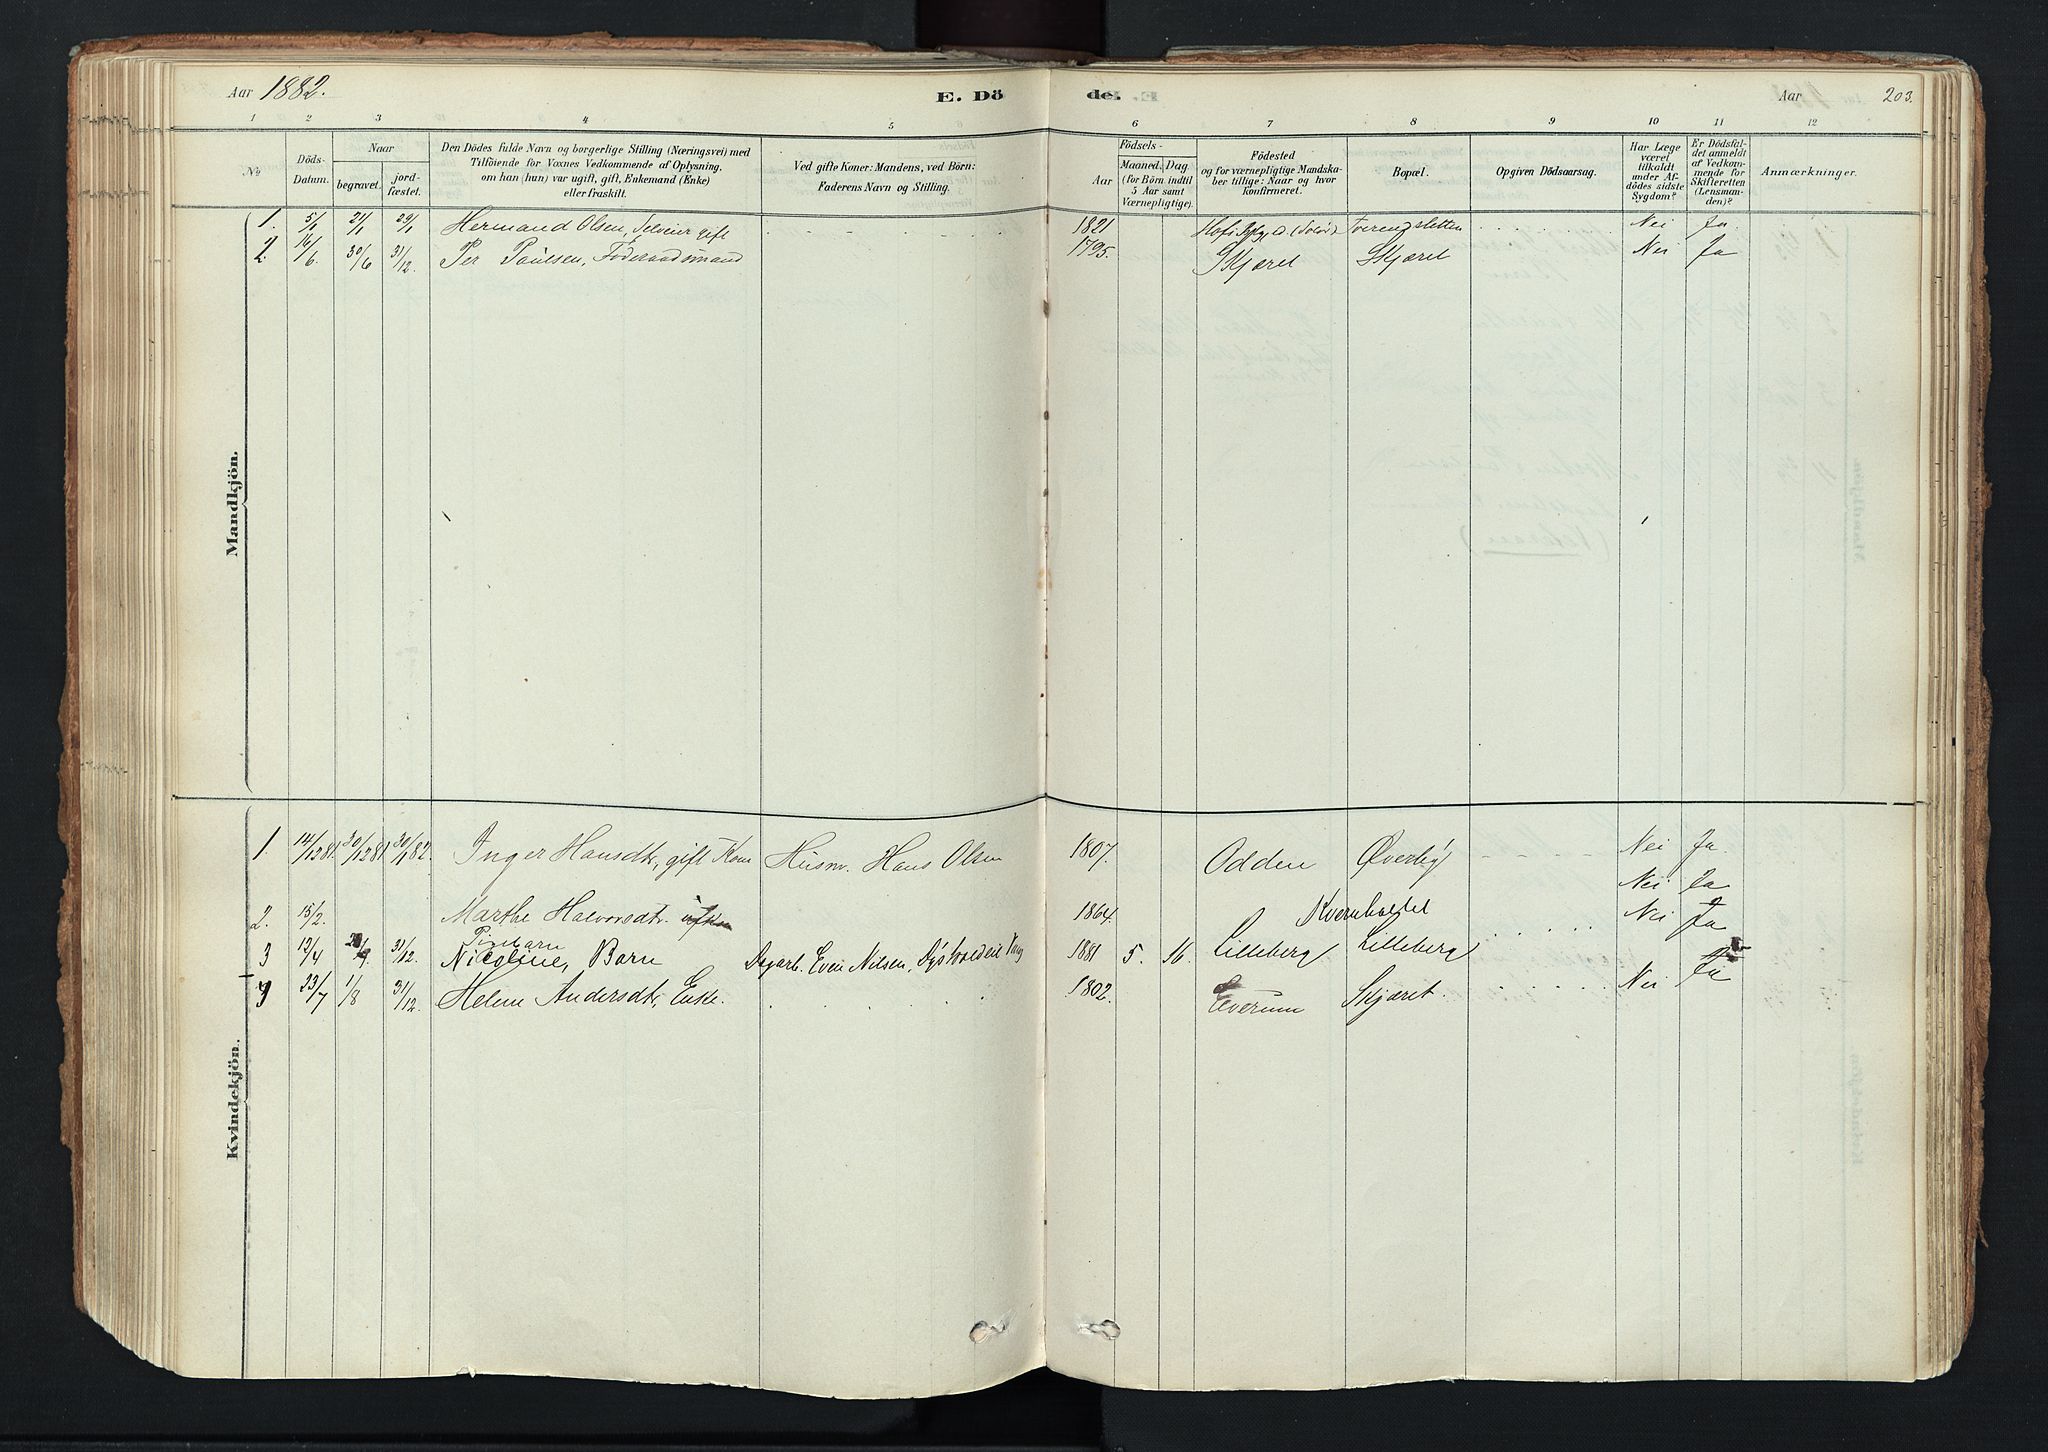 Aar 1882. E. Dö de. Aar 203.
1 2 3 4 5 6 7 8 9 10 11 12
№ Döds-Datum. Naar begravet. jord-fæstet. Den Dödes fulde Navn og borgerlige Stilling (Næringsvei) med Tilföiende for Voxnes Vedkommende af Oplysning, om han (hun) var ugift, gift, Enkemand (Enke) eller fraskilt. Ved gifte Koner: Mandens, ved Börn: Faderens Navn og Stilling. Födsels- Aar Maaned. Dag. (for Börn indtil 5 Aar samt Værnepligtige). Födested og for værnepligtige Mandskaber tillige: Naar og hvor konfirmeret. Bopæl. Opgiven Dödsaarsag. Har Læge været tilkaldt under Afdödes sidste Sygdom? Er Dödsfaldet anmeldt af Vedkommende for Skifteretten (Lensmanden)? Anmærkninger.
Mandkjön.
1. 5/1 21/1 29/1 Hermand Olsen, Selveier gift 1821 Nei Ja.
2. 16/6. 30/6 31/12. Per Paulsen, Föderaadsmand 1795. Skjæret Skjæret Nei Ja
Kvindekjön.
1. 14/12 81. 30/12 81 30/1 82. Inger Hansdtr, gift Kone Husm. Hans Olsen 1807. Odden Øverby Nei Ja.
Nei Ja
2. 15/2. Marthe Halvorsdtr. 1864. Kvernholtet Nei Ja
3 12/4 31/12. Nicoline, Barn Dagarb. Even Nilsen, 1881 5. 16. Lilleberg Lilleberg
23/7 1/8 31/12 Helene Andersdtr, Enke. 1802. Elverum Skjæret. Nei Ja